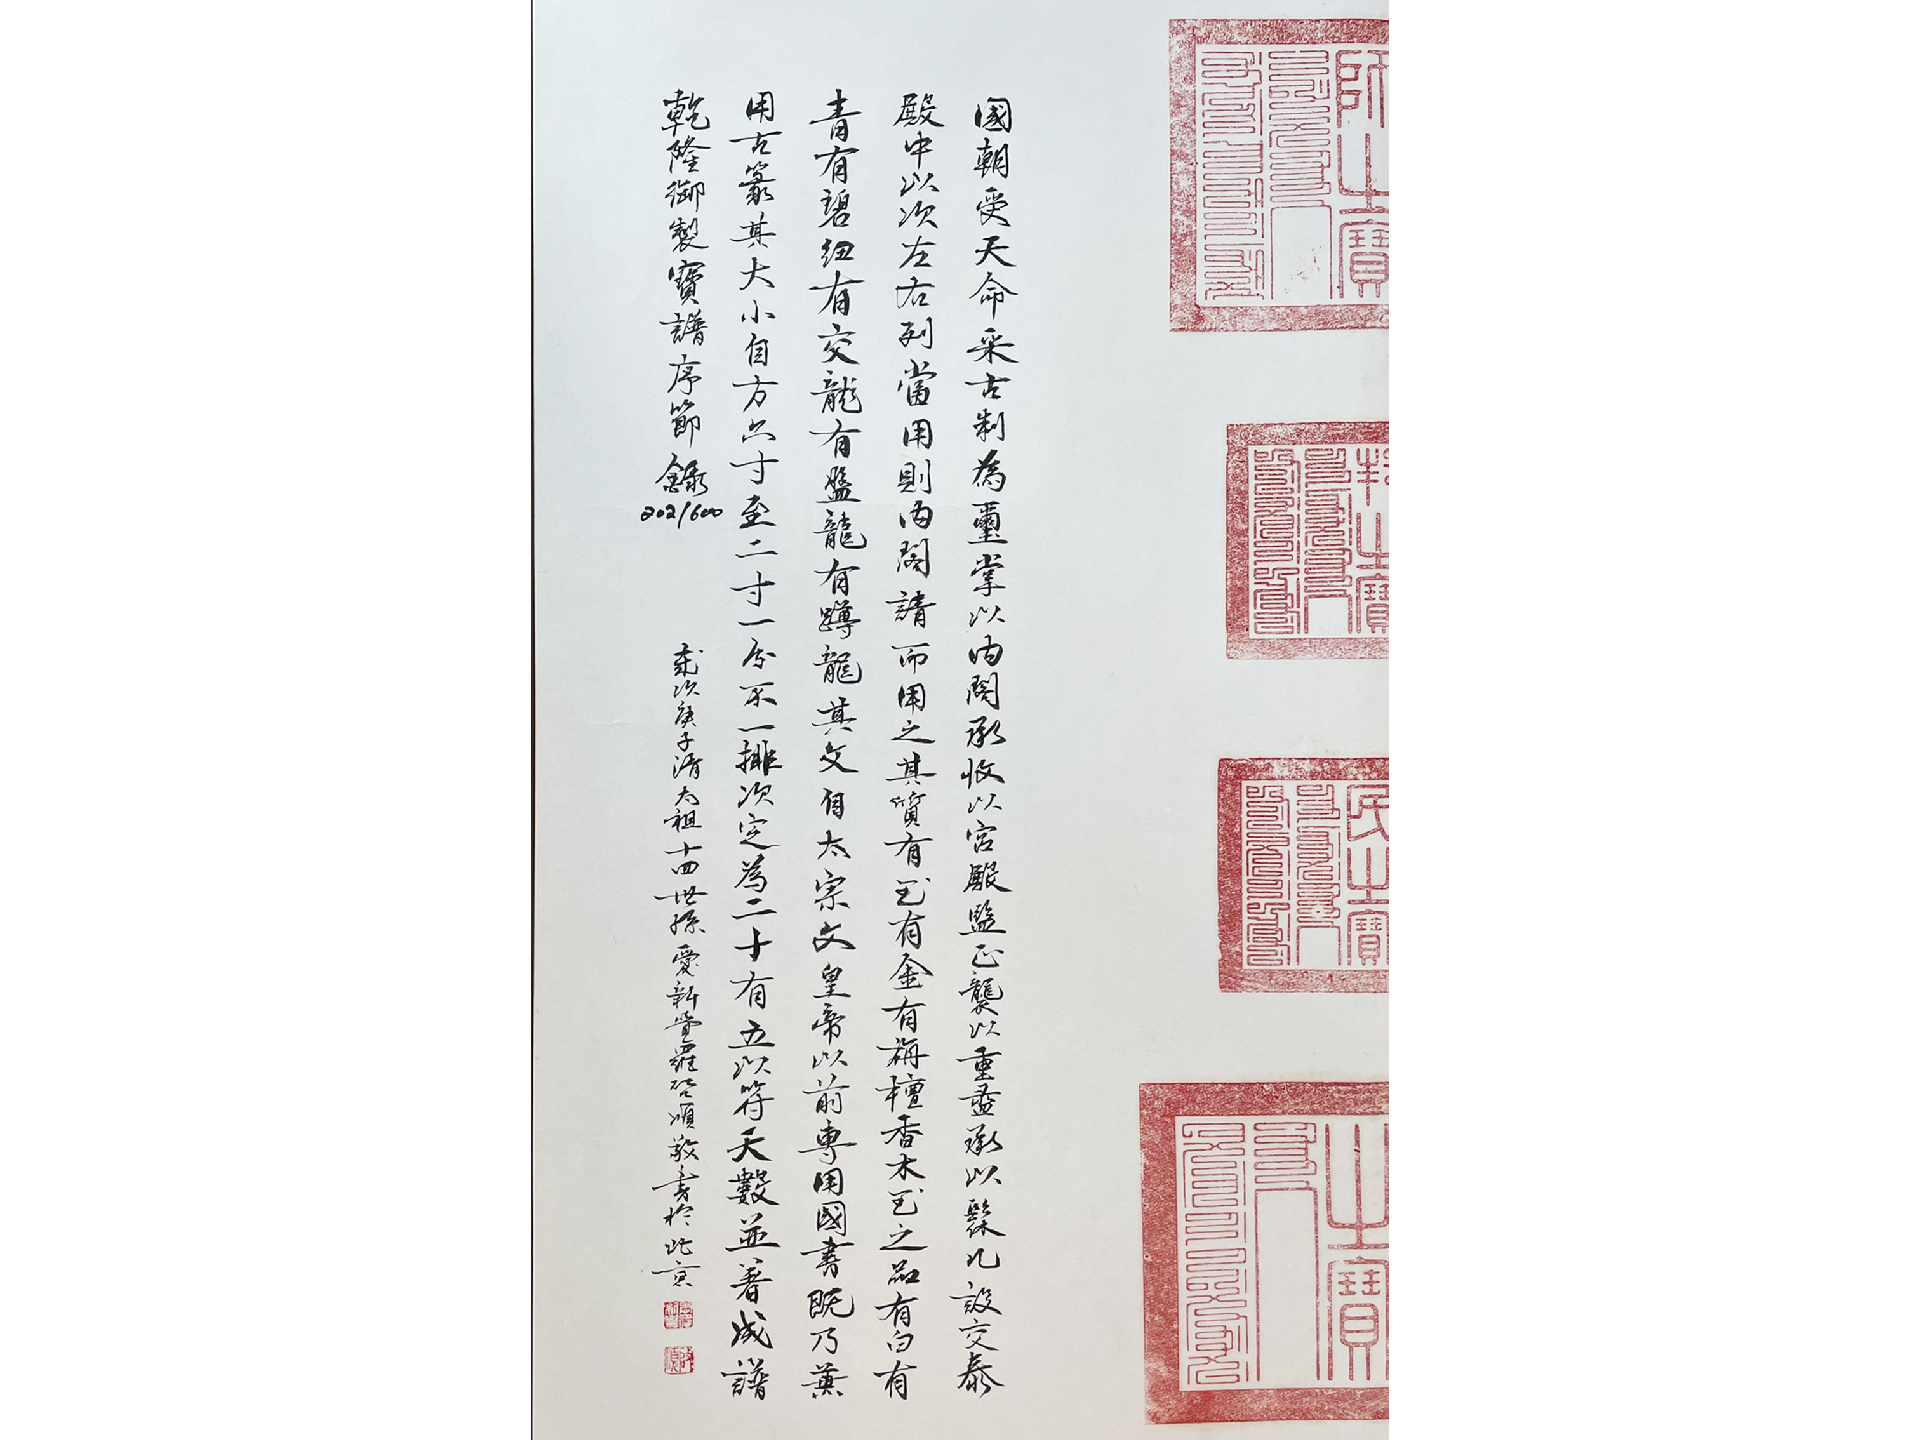 師之寶
之寶
民之寶
之寶
國朝受天命采古制為璽掌以內閣承收以宮殿監正襲以重盝承以髹几設交泰
殿中以次左右列當用則內閣請而用之其質有玉有金有栴檀香木玉之品有白有
青有碧紐有交龍有盤龍有蹲龍其文自太宗文皇帝以前專用國書既乃兼
用古篆其大小自方六寸至二寸一分不一排次定為二十有五以符天數並著成譜
乾隆御製寶譜序節錄
202/600
歲次庚子清太祖十四世孫愛新覺羅啓順敬書於北京